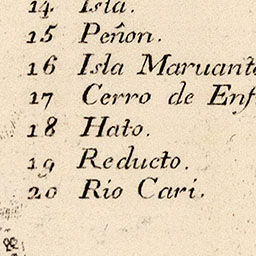 14 Isla.
15 Peñon.
16 Isla Maruant
17 Cerro de Enf
18 Hato.
19 Reducto.
20 Rio Cari.